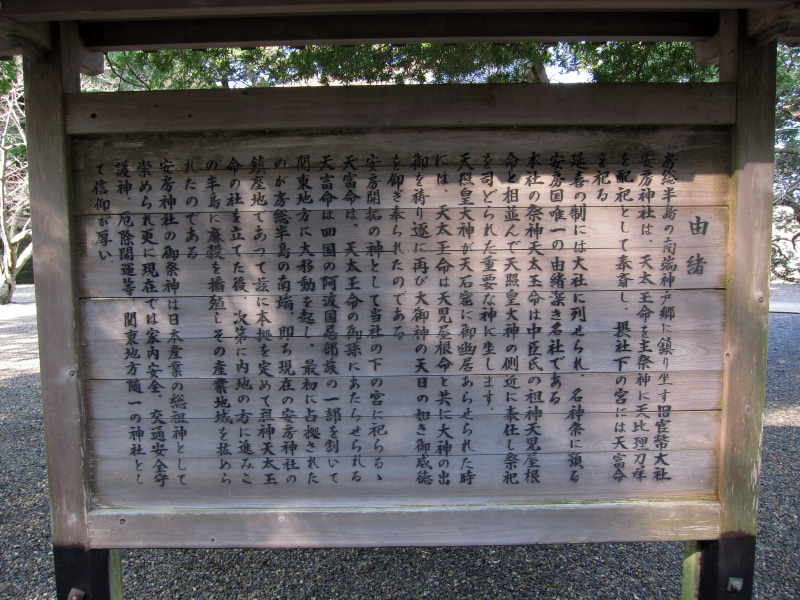 由緒
房総半島の南端神戸郷に鎮り坐す旧官幣大社
安房神社は、天太玉命を主祭神に天比理刀咩命
を配祀として奉斎し、摂社下の宮には天富命
を祀る
延喜の制には大社に列せられ、名神祭に預る
安房国唯一の由緒深き名社である
本社の祭神天太玉命は中臣氏の祖神天児屋根
命と相並んで天照皇大神の側近に奉仕し祭祀
を司どられた重要な神に坐します。
天照皇大神が天石窟に御幽居あらせられた時
には、天太玉命は天児屋根命と共に大神の出
御を祷り逐に再び大御神の天日の如き御威徳
を仰ぎ奉られたのである
安房開拓の神として当社の下の宮に祀らるゝ
天富命は、天太玉命の御孫にあたらせられる
天富命は四国の阿波国忌部族の一部を割いて
関東地方に大移動を起し、最初に占拠された
のが房総半島の南端、即ち現在の安房神社の
鎮座地であって茲に本拠を定めて祖神天太玉
命の社を立てた後、次第に内地の方に進みこ
の半島に麻穀を播殖しその産業地域を拡めら
れたのである
安房神社の御祭神は日本産業の総祖神として
崇められ更に現在では家内安全、交通安全守
護神、厄除開運等、関東地方随一の神社とし
て信仰が厚い、